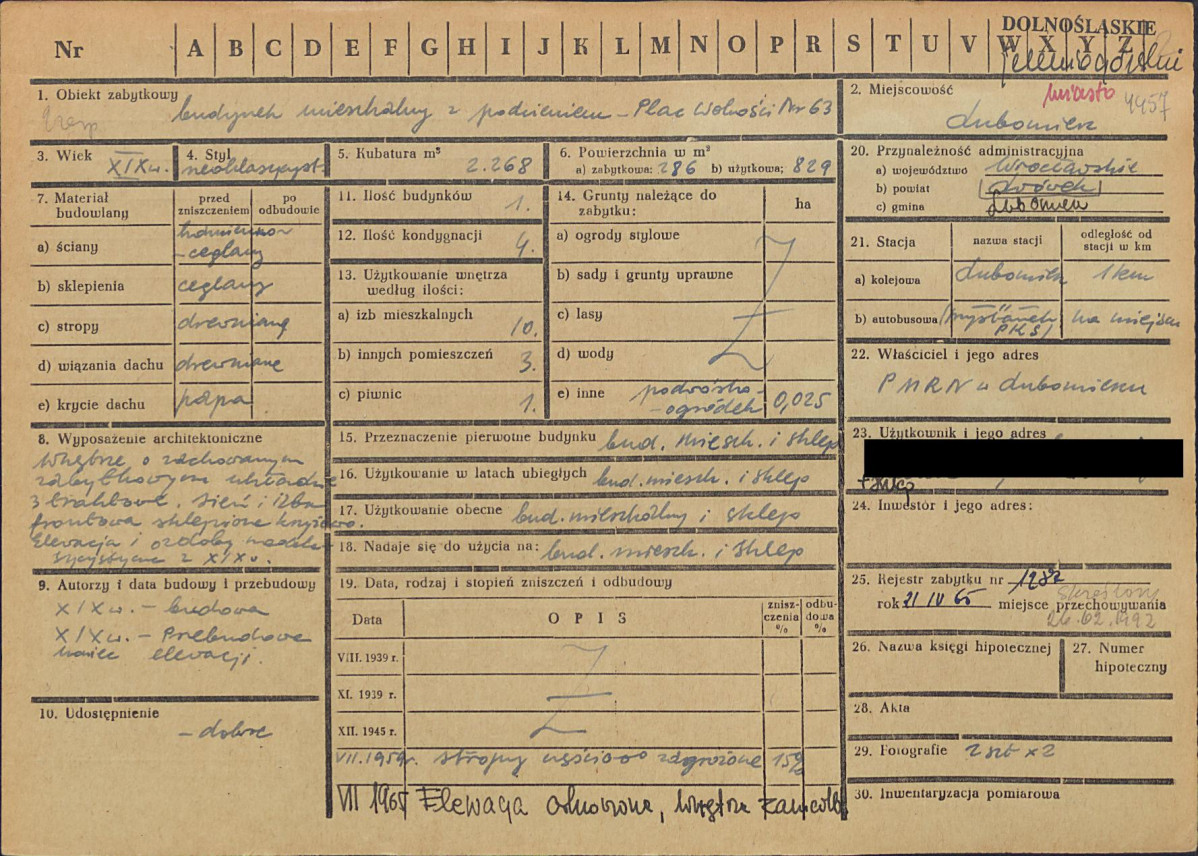 DOLNOŚLĄSKIE
Nr A B C D E F G H I J K L M N O P R S T U V W X Y Z
jeleniogórski
1. Obiekt zabytkowy
budynek mieszkalny z podcieniem – Plac Wolności Nr 63
2. Miejscowość
miasto 4457
Lubomierz
3. Wiek
XIX w.
4. Styl
neoklasycyst.
5. Kubatura m³
2.268
6. Powierzchnia w m²
a) zabytkowa: 286 b) użytkowa: 829
20. Przynależność administracyjna
a) województwo Wrocławskie
b) powiat Lwówek
c) gmina Lubomierz
7. Materiał budowlany
przed zniszczeniem
po odbudowie
a) ściany kamienno-ceglany
b) sklepienia ceglany
c) stropy drewniane
d) wiązania dachu drewniane
e) krycie dachu papa
11. Ilość budynków 1.
12. Ilość kondygnacji 4.
13. Użytkowanie wnętrza według ilości:
a) izb mieszkalnych 10.
b) innych pomieszczeń 3.
c) piwnic 1.
14. Grunty należące do zabytku:
ha
a) ogrody stylowe
b) sady i grunty uprawne
c) lasy
d) wody
e) inne podwórko-ogródek 0,025
21. Stacja
nazwa stacji
odległość od stacji w km
a) kolejowa Lubomierz 1 km
b) autobusowa (przystanek PKS) na miejscu
22. Właściciel i jego adres
PMRN w Lubomierzu
8. Wyposażenie architektoniczne
Wnętrze o zachowanym
zabytkowym układzie
3 traktowe. Sień i izba
frontowa sklepione krzyżowo.
Elewacja i ozdoby
z XIX w.
15. Przeznaczenie pierwotne budynku bud. miesz. i sklep
16. Użytkowanie w latach ubiegłych bud. miesz. i sklep
17. Użytkowanie obecne bud. mieszkalny i sklep
18. Nadaje się do użycia na: bud. miesz. i sklep
23. Użytkownik i jego adres
+ sklep
24. Inwestor i jego adres:
9. Autorzy i data budowy i przebudowy
XIX w. – budowa
XIX w. – Przebudowa
koniec elewacji.
19. Data, rodzaj i stopień zniszczeń i odbudowy
Data
OPIS
zniszczenia %
odbudowa %
VIII. 1939 r.
XI. 1939 r.
XII. 1945 r.
VII.1959 r. stropy częściowo zagrożone 15%
VII 1965 Elewacja odnowiona, wnętrze
25. Rejestr zabytku nr 1282
rok 21 IV 65 miejsce przechowywania
Skreślony
26.02.1992
26. Nazwa księgi hipotecznej
27. Numer hipoteczny
10. Udostępnienie
– dobre
28. Akta
29. Fotografie 2 szt x2
30. Inwentaryzacja pomiarowa